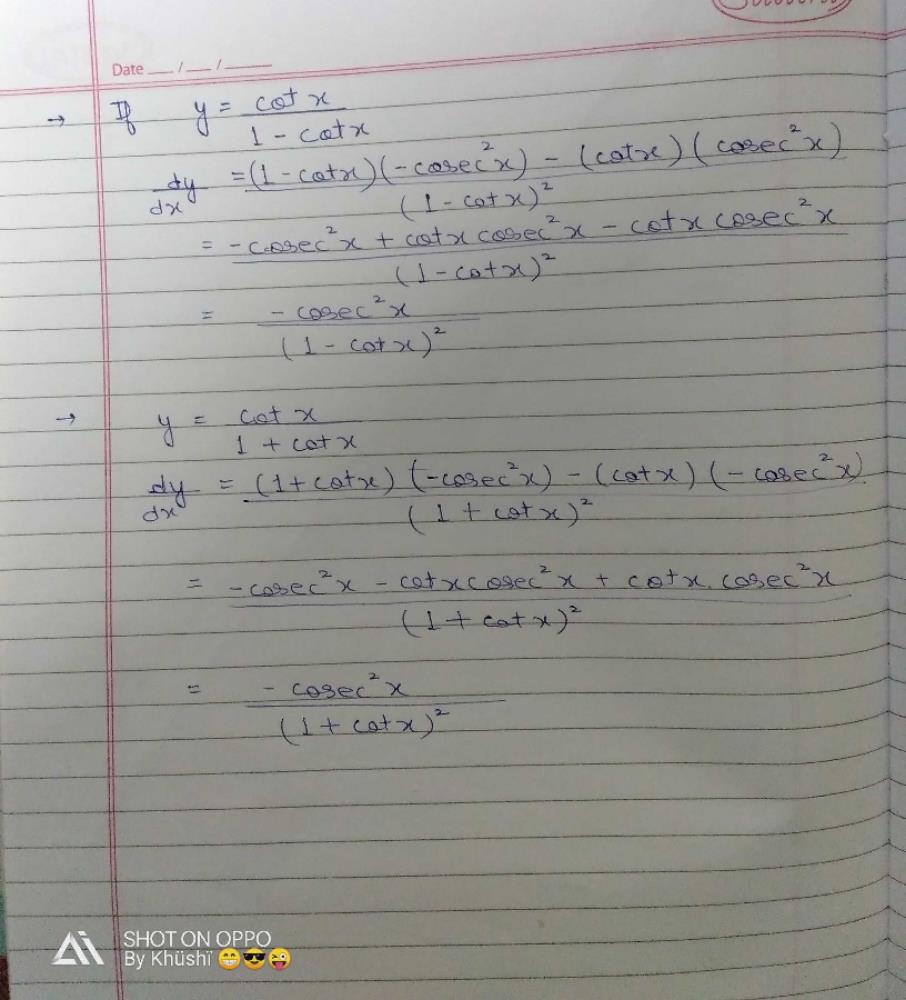 Date __/__/____
→ If y = cot x / 1 - cot x
dy/dx = (1 - cot x)(-cosec²x) - (cot x)(cosec²x) / (1 - cot x)²
= -cosec²x + cot x cosec²x - cot x cosec²x / (1 - cot x)²
= - cosec²x / (1 - cot x)²
→ y = cot x / 1 + cot x
dy/dx = (1 + cot x)(-cosec²x) - (cot x)(-cosec²x) / (1 + cot x)²
= -cosec²x - cot x cosec²x + cot x . cosec²x / (1 + cot x)²
= - cosec²x / (1 + cot x)²
SHOT ON OPPO
By Khüshï 😁😎😜